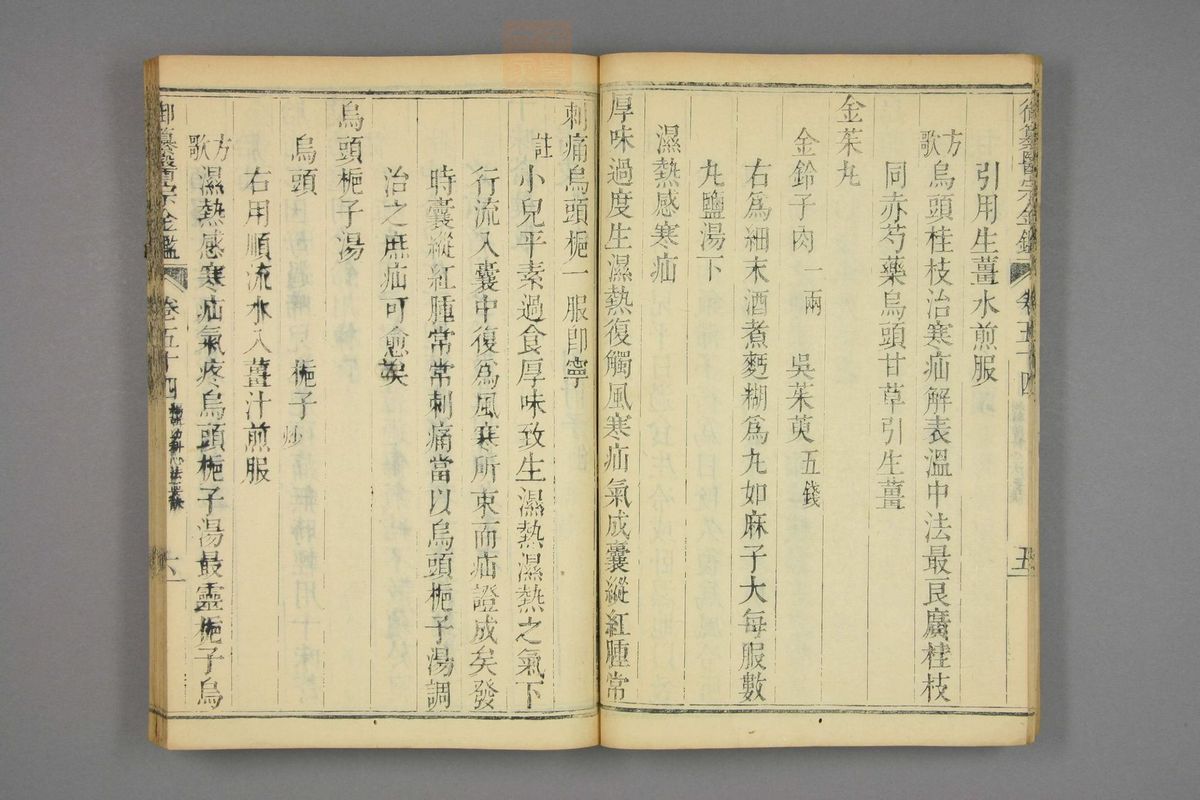 引用生薑水煎服
方歌
烏頭桂枝治寒疝解表溫中法最良廣桂枝
同赤芍藥烏頭甘草引生薑
金茱丸
金鈴子肉一兩 吳茱萸五錢
右爲細末酒煮麪糊爲丸如麻子大每服數
丸鹽湯下
濕熱感寒疝
厚味過度生濕熱復觸風寒疝氣成囊縱紅腫常
刺痛烏頭梔一服卽寧
註小兒平素過食厚味致生濕熱濕熱之氣下
行流入囊中復為風寒所束而疝證成矣發
時囊縱紅腫常常刺痛當以烏頭梔子湯調
治之庶疝可愈矣
烏頭梔子湯
烏頭 梔子炒
右用順流水入薑汁煎服
方歌
濕熱感寒疝氣疼烏頭梔子湯最靈梔子烏
御纂醫宗金鑑 卷五十四 六